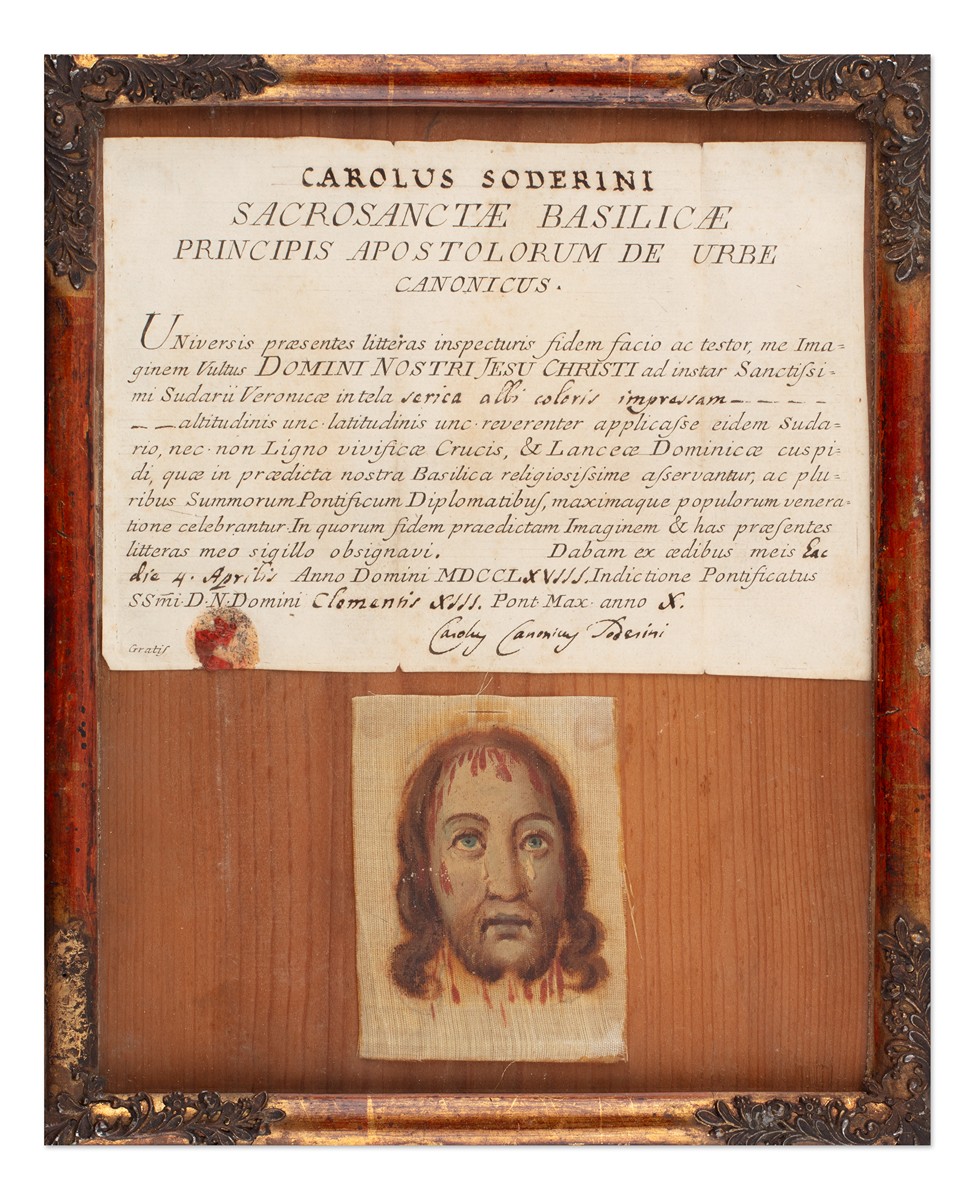 CAROLUS SODERINI
SACROSANCTÆ BASILICÆ
PRINCIPIS APOSTOLORUM DE URBE
CANONICUS.
UNiversis præsentes litteras inspecturis fidem facio ac testor, me Ima=
ginem Vultus DOMINI NOSTRI JESU CHRISTI ad instar Sanctiſsi-
mi Sudarii Veronicæ in tela serica albi coloris impressam – – – – –
– – altitudinis unc· latitudinis unc· reverenter applicaſse eidem Suda=
rio, nec·non Ligno vivificæ Crucis, & Lanceæ Dominicæ cuspi=
di, quæ in prædicta nostra Basilica religiosiſsime aſservantur, ac plu=
ribus Summorum Pontificum Diplomatibuſ, maximaque populorum venera=
tione celebrantur. In quorum fidem praedictam Imaginem & has præſentes
litteras meo sigillo obsignavi. Dabam ex ædibus meis hac
die 4. Aprilis Anno Domini MDCCLXVIII. Indictione Pontificatus
SSm̃i·D·N·Domini Clementis XIII. Pont·Max· anno X.
Carolus Canonicus Soderini
Gratiſ